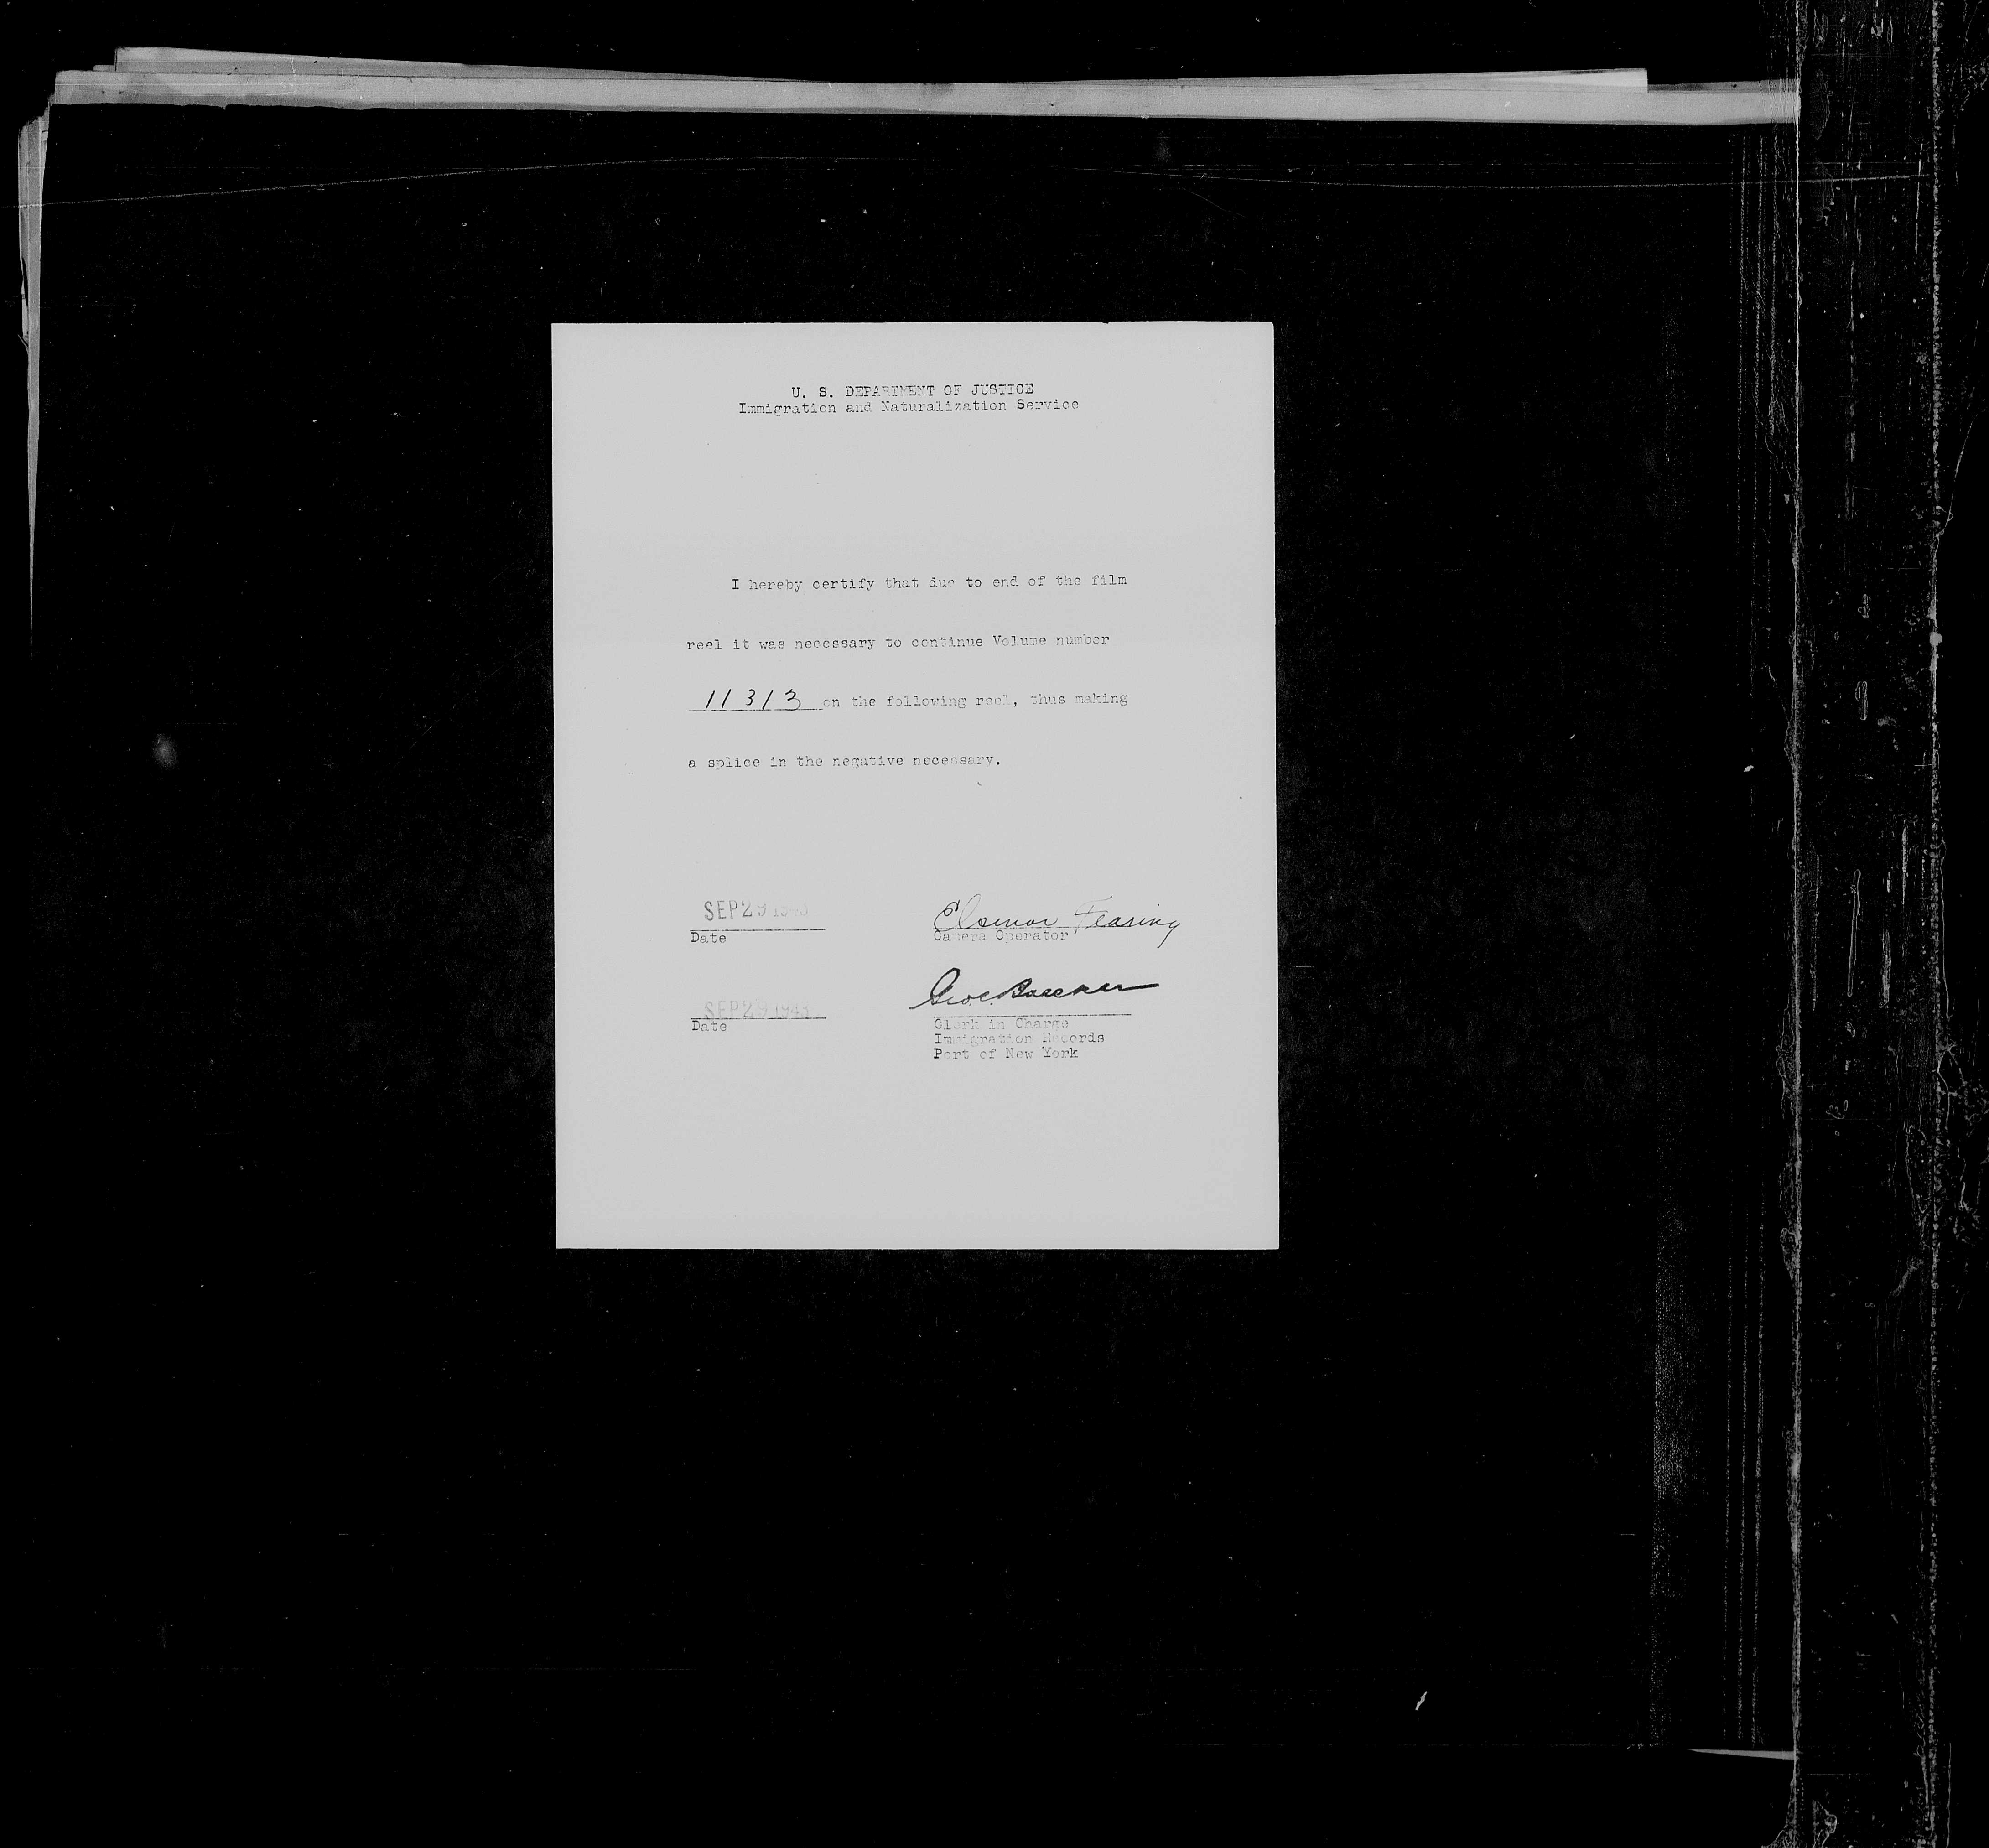 U. S. DEPARTMENT OF JUSTICE
Immigration and Naturalization Service
I hereby certify that due to end of the film
reel it was necessary to continue Volume number
11313 on the following reel, thus making
a splice in the negative necessary.
SEP 29 1943
Date
Eleanor Fearing
Camera Operator
SEP 29 1943
Date
Clerk in Charge
Immigration Records
Port of New York